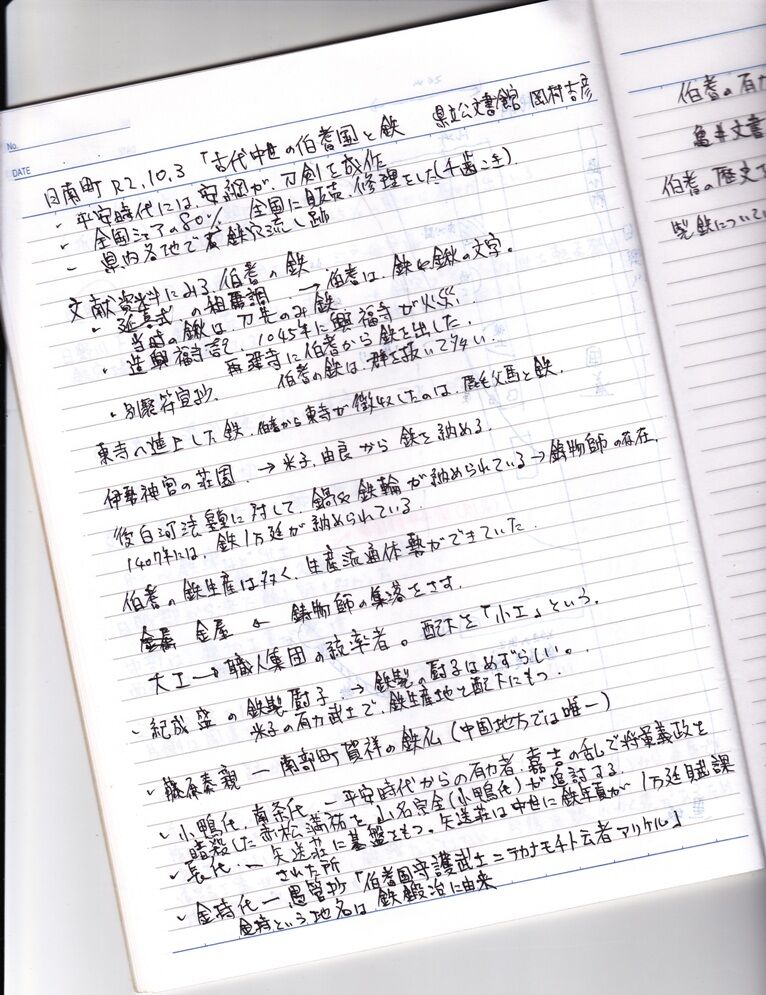 No.
DATE
日南町 R2.10.3 「古代中世の伯耆国と鉄 県立公文書館 岡村吉彦
・平安時代には安綱が、刀剣を製作
・全国シェアの80% 全国に販売、修理をした(千歯こき)
・県内各地で 鉄穴流し跡
文献資料にみる伯耆の鉄
・延喜式の 調 → 伯耆は、鉄や鍬の文字。
当時の鍬は、刃先のみ鉄
・造興福寺記 1045年に興福寺が火災、
再建時に伯耆から鉄を出した。
伯耆の鉄は、群を抜いて多い。
・別聚符宣抄、
東寺へ進上した鉄、伯耆から東寺が徴収したのは、鹿毛父馬と鉄、
伊勢神宮の荘園、→ 米子、由良から鉄を納める。
後白河法皇に対して、鍋や鉄輪が納められている → 鋳物師の存在、
1407年には、鉄1万廷が納められている。
伯耆の鉄生産は多く、生産流通体勢ができていた。
金屋 ← 鋳物師の集落をさす。
大工 → 職人集団の統率者。配下を「小工」という。
・紀成盛の鉄製厨子 → 鉄製の厨子はめずらしい。
米子の有力武士で、鉄生産地を配下にもつ。
・藤原泰親 ー 南部町賀祥の鉄仏(中国地方では唯一)
・小鴨氏、南条氏、ー 平安時代からの有力者、嘉吉の乱で将軍義政を
暗殺した赤松満祐を、山名宗全(小鴨氏)が追討する。
・長氏 ー 矢送荘に基盤をもつ。矢送荘は中世に鉄年貢が1万廷賦課
された所
・金持氏 ー 愚管抄「伯耆国守護武士ニテカナモチト云者アリケル」
金持という地名は 鉄鍛冶に由来
伯耆の有力
亀井文書
伯耆の歴史
製鉄につい